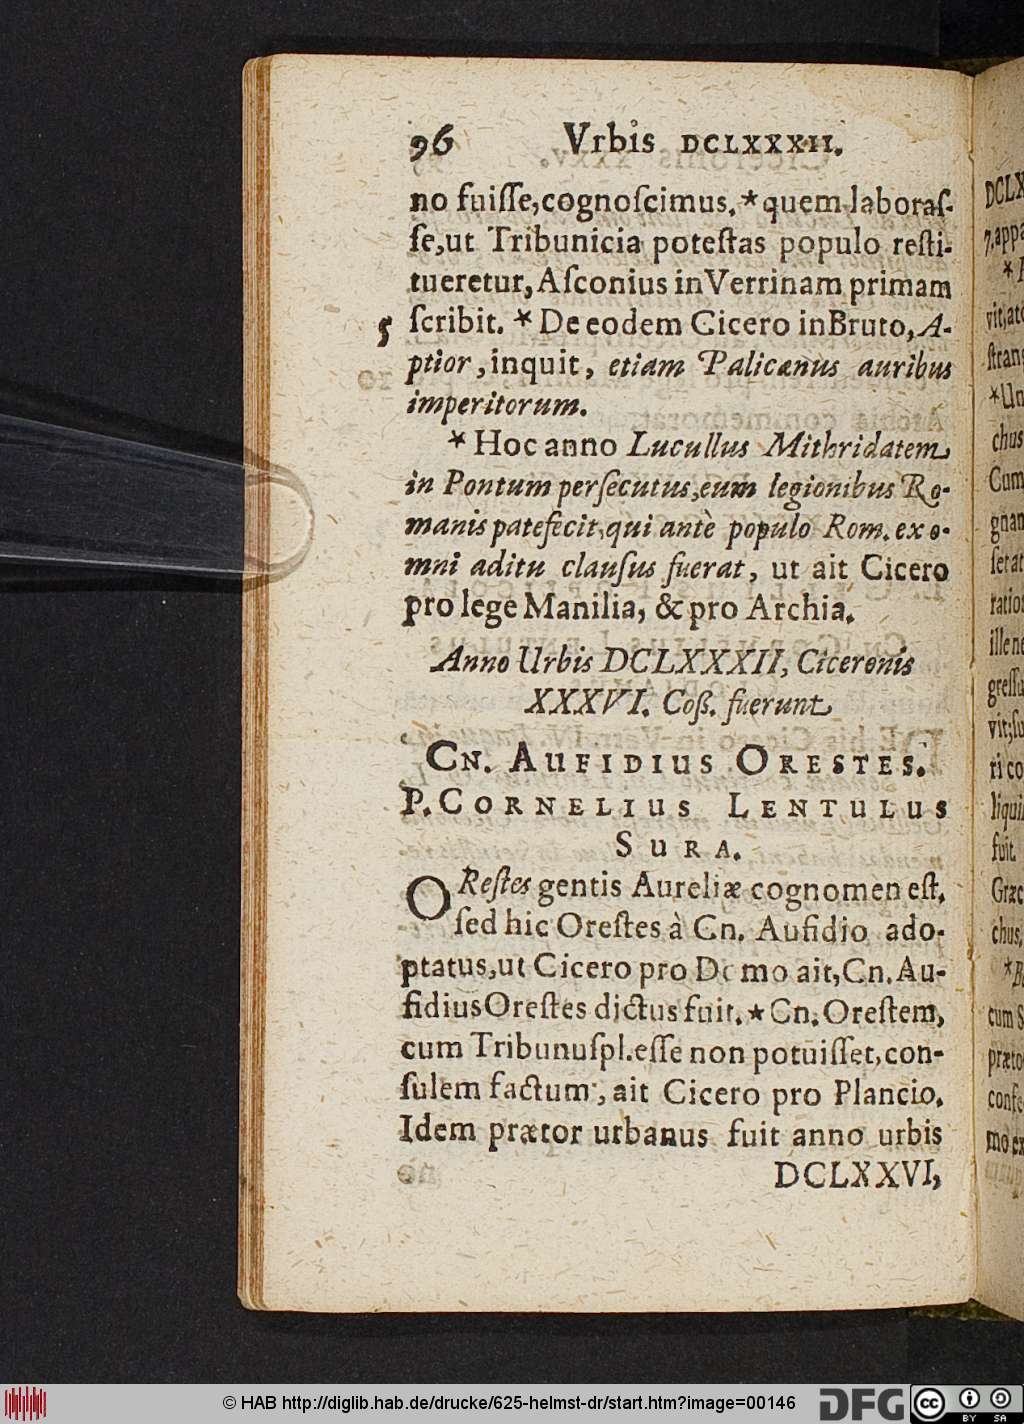 96 Vrbis DCLXXXII.
no fuiſſe,cognoſcimus.*quem laboraſ-
ſe,ut Tribunicia poteſtas populo reſti-
tueretur, Aſconius in Verrinam primam
5 ſcribit. * De eodem Cicero in Bruto, A-
ptior, inquit, etiam Palicanus auribus
imperitorum.
* Hoc anno Lucullus Mithridatem
in Pontum perſecutus,eum legionibus Ro-
manis patefecit,qui antè populo Rom. ex o-
mni aditu clauſus fuerat, ut ait Cicero
pro lege Manilia, & pro Archia.
Anno Urbis DCLXXXII, Ciceronis
XXXVI. Coß. fuerunt
CN. AUFIDIUS ORESTES.
P. CORNELIUS LENTULUS
SURA.
OReſtes gentis Aureliæ cognomen eſt,
ſed hic Oreſtes à Cn. Aufidio ado-
ptatus,ut Cicero pro Domo ait,Cn. Au-
fidius Oreſtes dictus fuit.* Cn. Oreſtem,
cum Tribunuſpl.eſſe non potuiſſet,con-
ſulem factum, ait Cicero pro Plancio.
Idem prætor urbanus fuit anno urbis
DCLXXVI,
DCLX
7.appa
vit,atq
ſtrang
*Un
chus
Cum
gnan
ratio
ille ne
greſſu
vit;ſu
ri co
liqui
fuit.
Græc
chus,
cum S
præto
confe
mo ex
© HAB http://diglib.hab.de/drucke/625-helmst-dr/start.htm?image=00146
DFG
cc
BY SA